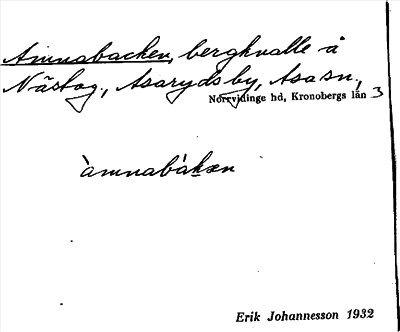 Amnabacken, bergknalle å
Näs tog., Asaryds by, Asa sn.,
Norrvidinge hd, Kronobergs län 3
àmnabàkæn
Erik Johannesson 1932